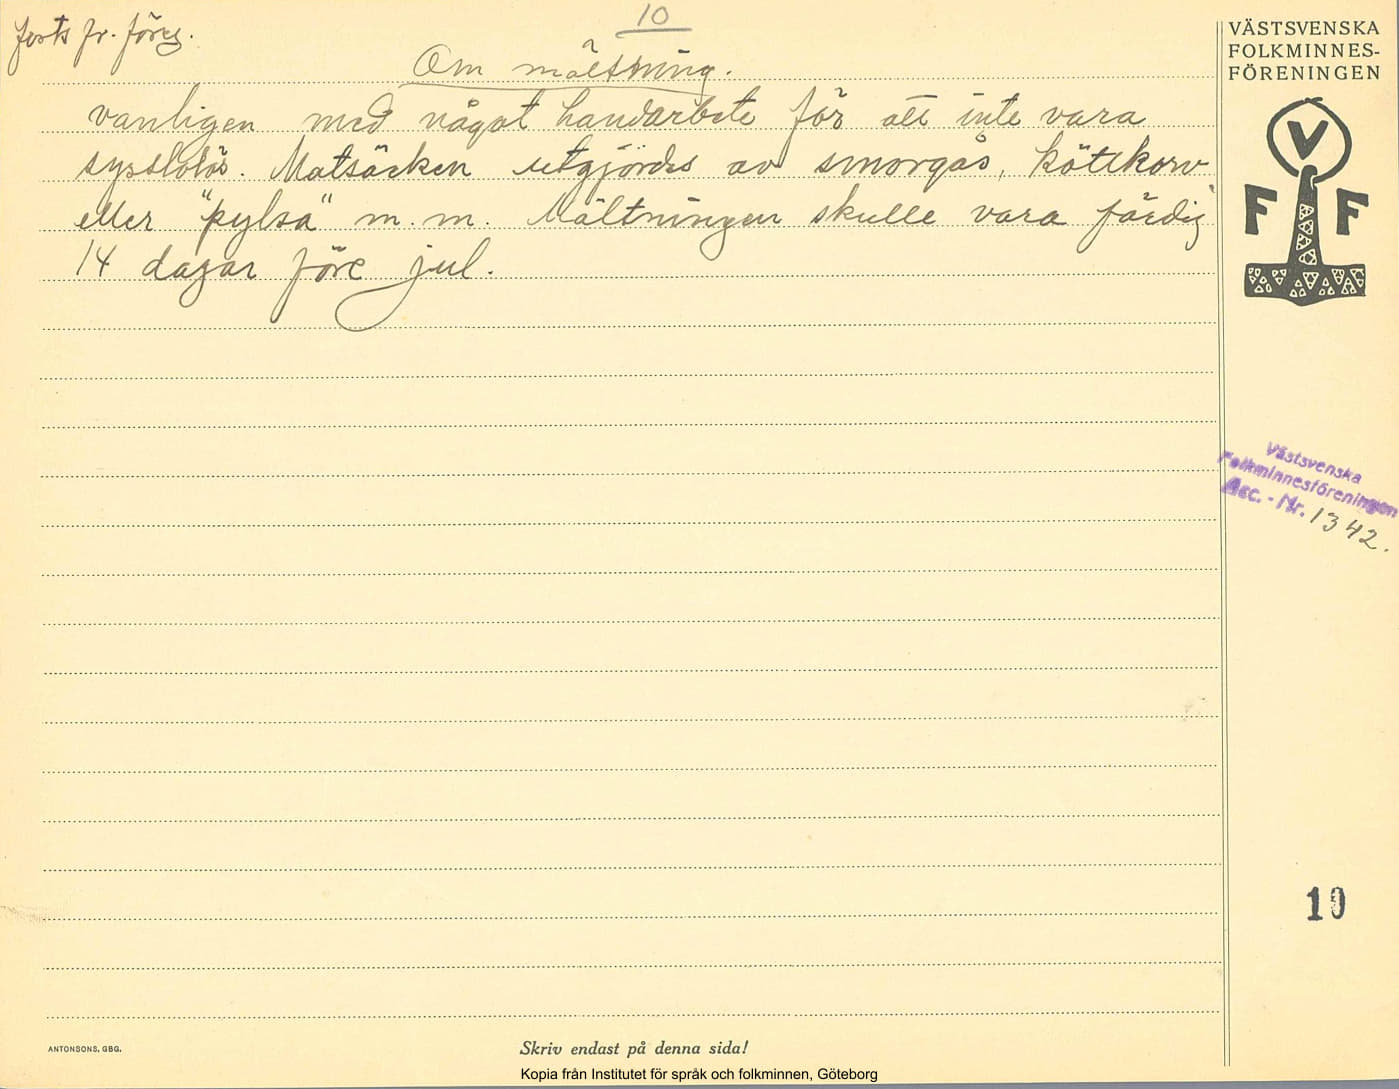 10
forts fr. föreg.
Om mältning.
vanligen med något handarbete för att inte vara
sysslolös. Matsäcken utgjordes av smörgås, köttkorv
eller "pylsa" m.m. Mältningen skulle vara färdig
14 dagar före jul.
VÄSTSVENSKA
FOLKMINNES-
FÖRENINGEN
V
F F
Västsvenska
Folkminnesföreningen
Acc. - Nr. 1342.
10
ANTONSONS, GBG.
Skriv endast på denna sida!
Kopia från Institutet för språk och folkminnen, Göteborg